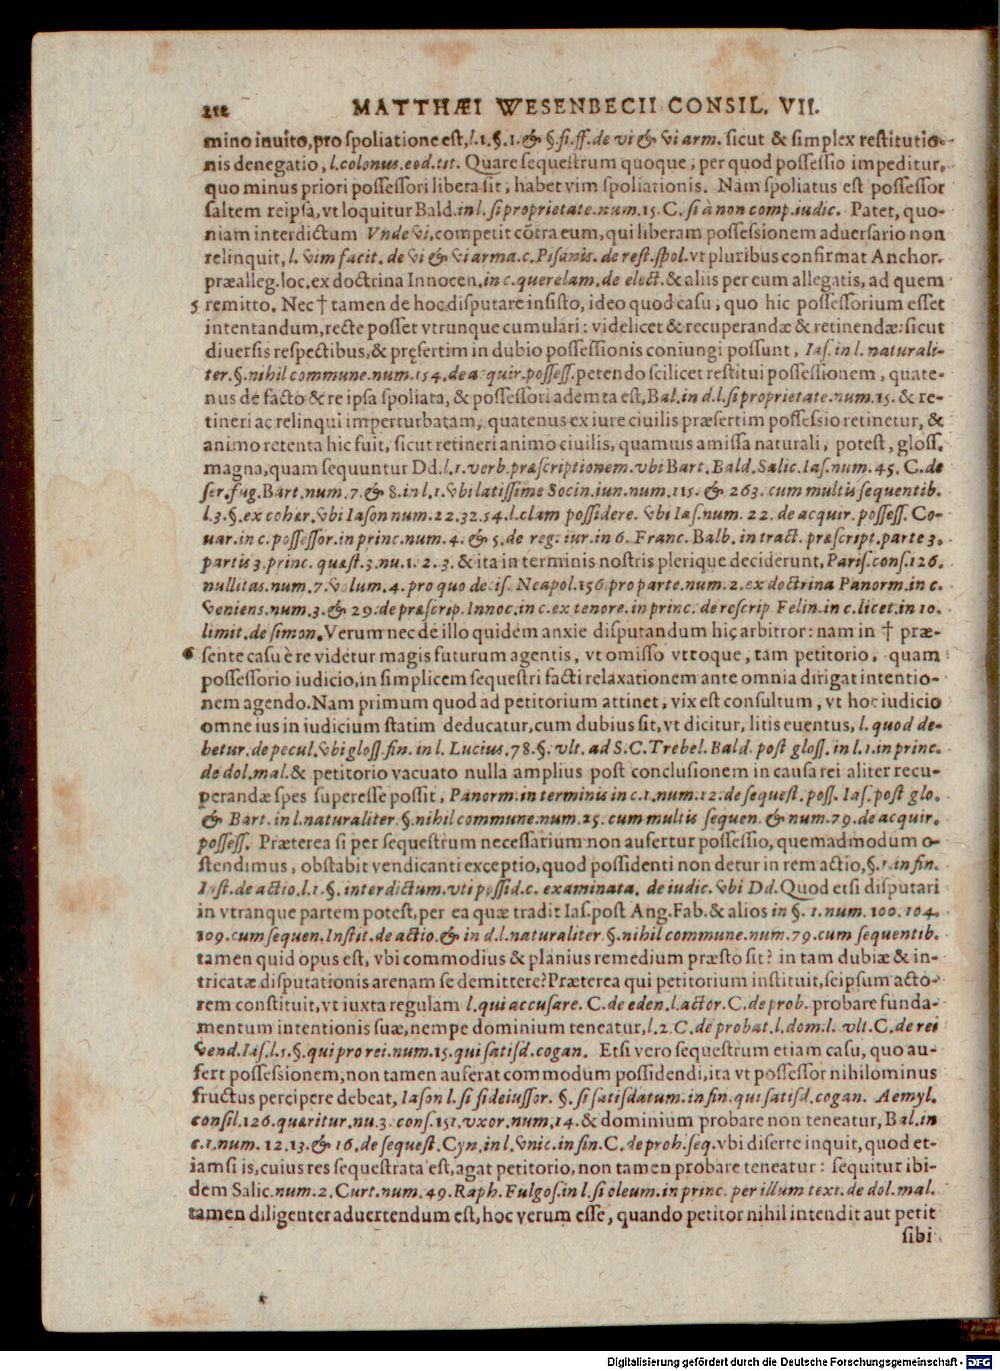 212 MATTHÆI WESENBECII CONSIL. VII.
mino inuito, pro spoliatione est, l. 1. §. 1. & §. fi. ff. de vi & vi arm. sicut & simplex restitutio-
nis denegatio, l. colonus. eod. tit. Quare sequestrum quoque, per quod possessio impeditur,
quo minus priori possessori libera sit, habet vim spoliationis. Nam spoliatus est possessor
saltem reipsa, vt loquitur Bald. in l. si proprietate. num. 15. C. si à non comp. iudic. Patet, quo-
niam interdictum Vnde vi, competit cõtra eum, qui liberam possessionem aduersario non
relinquit, l. vim facit. de vi & vi arma. c. Pisanis. de rest. spol. vt pluribus confirmat Anchor.
præalleg. loc. ex doctrina Innocen. in c. querelam. de elect. & aliis per eum allegatis, ad quem
5 remitto. Nec † tamen de hoc disputare insisto, ideo quod casu, quo hic possessorium esset
intentandum, recte posset vtrunque cumulari: videlicet & recuperandæ & retinendæ: sicut
diuersis respectibus, & pręsertim in dubio possessionis coniungi possunt, Ias. in l. naturali-
ter. §. nihil commune. num. 154. de acquir. possess. petendo scilicet restitui possessionem, quate-
nus de facto & re ipsa spoliata, & possessori ademta est, Bal. in d. l. si proprietate. num. 15. & re-
tineri ac relinqui imperturbatam, quatenus ex iure ciuilis præsertim possessio retinetur, &
animo retenta hic fuit, sicut retineri animo ciuilis, quamuis amissa naturali, potest, gloss.
magna, quam sequuntur Dd. l. 1. verb. præscriptionem. vbi Bart. Bald. Salic. Ias. num. 45. C. de
ser. fug. Bart. num. 7. & 8. in l. 1. vbi latissime Socin. iun. num. 115. & 263. cum multis sequentib.
l. 3. §. ex cohær. vbi Iason num. 22. 32. 54. l. clam possidere. vbi Ias. num. 22. de acquir. possess. Co-
uar. in c. possessor. in princ. num. 4. & 5. de reg. iur. in 6. Franc. Balb. in tract. præscript. parte 3.
partis 3. princ. quæst. 3. nu. 1. 2. 3. & ita in terminis nostris plerique deciderunt, Paris. cons. 126.
nullitas. num. 7. volum. 4. pro quo decis. Neapol. 156. pro parte. num. 2. ex doctrina Panorm. in c.
veniens. num. 3. & 29. de præscrip. Innoc. in c. ex tenore. in princ. de rescrip. Felin. in c. licet. in 10.
limit. de simon. Verum nec de illo quidem anxie disputandum hic arbitror: nam in † præ-
6 sente casu è re videtur magis futurum agentis, vt omisso vtroque, tam petitorio, quam
possessorio iudicio, in simplicem sequestri facti relaxationem ante omnia dirigat intentio-
nem agendo. Nam primum quod ad petitorium attinet, vix est consultum, vt hoc iudicio
omne ius in iudicium statim deducatur, cum dubius sit, vt dicitur, litis euentus, l. quod de-
betur. de pecul. vbi gloss. fin. in l. Lucius. 78. §. vlt. ad S. C. Trebel. Bald. post gloss. in l. 1. in princ.
de dol. mal. & petitorio vacuato nulla amplius post conclusionem in causa rei aliter recu-
perandæ spes superesse possit, Panorm. in terminis in c. 1. num. 12. de sequest. poss. Ias. post glo.
& Bart. in l. naturaliter. §. nihil commune. num. 25. cum multis sequen. & num. 79. de acquir.
possess. Præterea si per sequestrum necessarium non aufertur possessio, quemadmodum o-
stendimus, obstabit vendicanti exceptio, quod possidenti non detur in rem actio, §. 1. in fin.
Inst. de actio. l. 1. §. interdictum. vti possid. c. examinata. de iudic. vbi Dd. Quod etsi disputari
in vtranque partem potest, per ea quæ tradit Ias. post Ang. Fab. & alios in §. 1. num. 100. 104.
109. cum sequen. Instit. de actio. & in d. l. naturaliter. §. nihil commune. num. 79. cum sequentib.
tamen quid opus est, vbi commodius & planius remedium præsto sit? in tam dubiæ & in-
tricatæ disputationis arenam se demittere? Præterea qui petitorium instituit, seipsum acto-
rem constituit, vt iuxta regulam l. qui accusare. C. de eden. l. actor. C. de prob. probare funda-
mentum intentionis suæ, nempe dominium teneatur, l. 2. C. de probat. l. dom. l. vlt. C. de rei
vend. Ias. l. 5. §. qui pro rei. num. 15. qui satisd. cogan. Etsi vero sequestrum etiam casu, quo au-
fert possessionem, non tamen auferat commodum possidendi, ita vt possessor nihilominus
fructus percipere debeat, Iason l. si fideiussor. §. si satisdatum. in fin. qui satisd. cogan. Aemyl.
consil. 126. quæritur. nu. 3. cons. 151. vxor. num. 14. & dominium probare non teneatur, Bal. in
c. 1. num. 12. 13. & 16. de sequest. Cyn. in l. vnic. in fin. C. de proh. seq. vbi diserte inquit, quod et-
iamsi is, cuius res sequestrata est, agat petitorio, non tamen probare teneatur: sequitur ibi-
dem Salic. num. 2. Curt. num. 49. Raph. Fulgos. in l. si oleum. in princ. per illum text. de dol. mal.
tamen diligenter aduertendum est, hoc verum esse, quando petitor nihil intendit aut petit
sibi
Digitalisierung gefördert durch die Deutsche Forschungsgemeinschaft - DFG